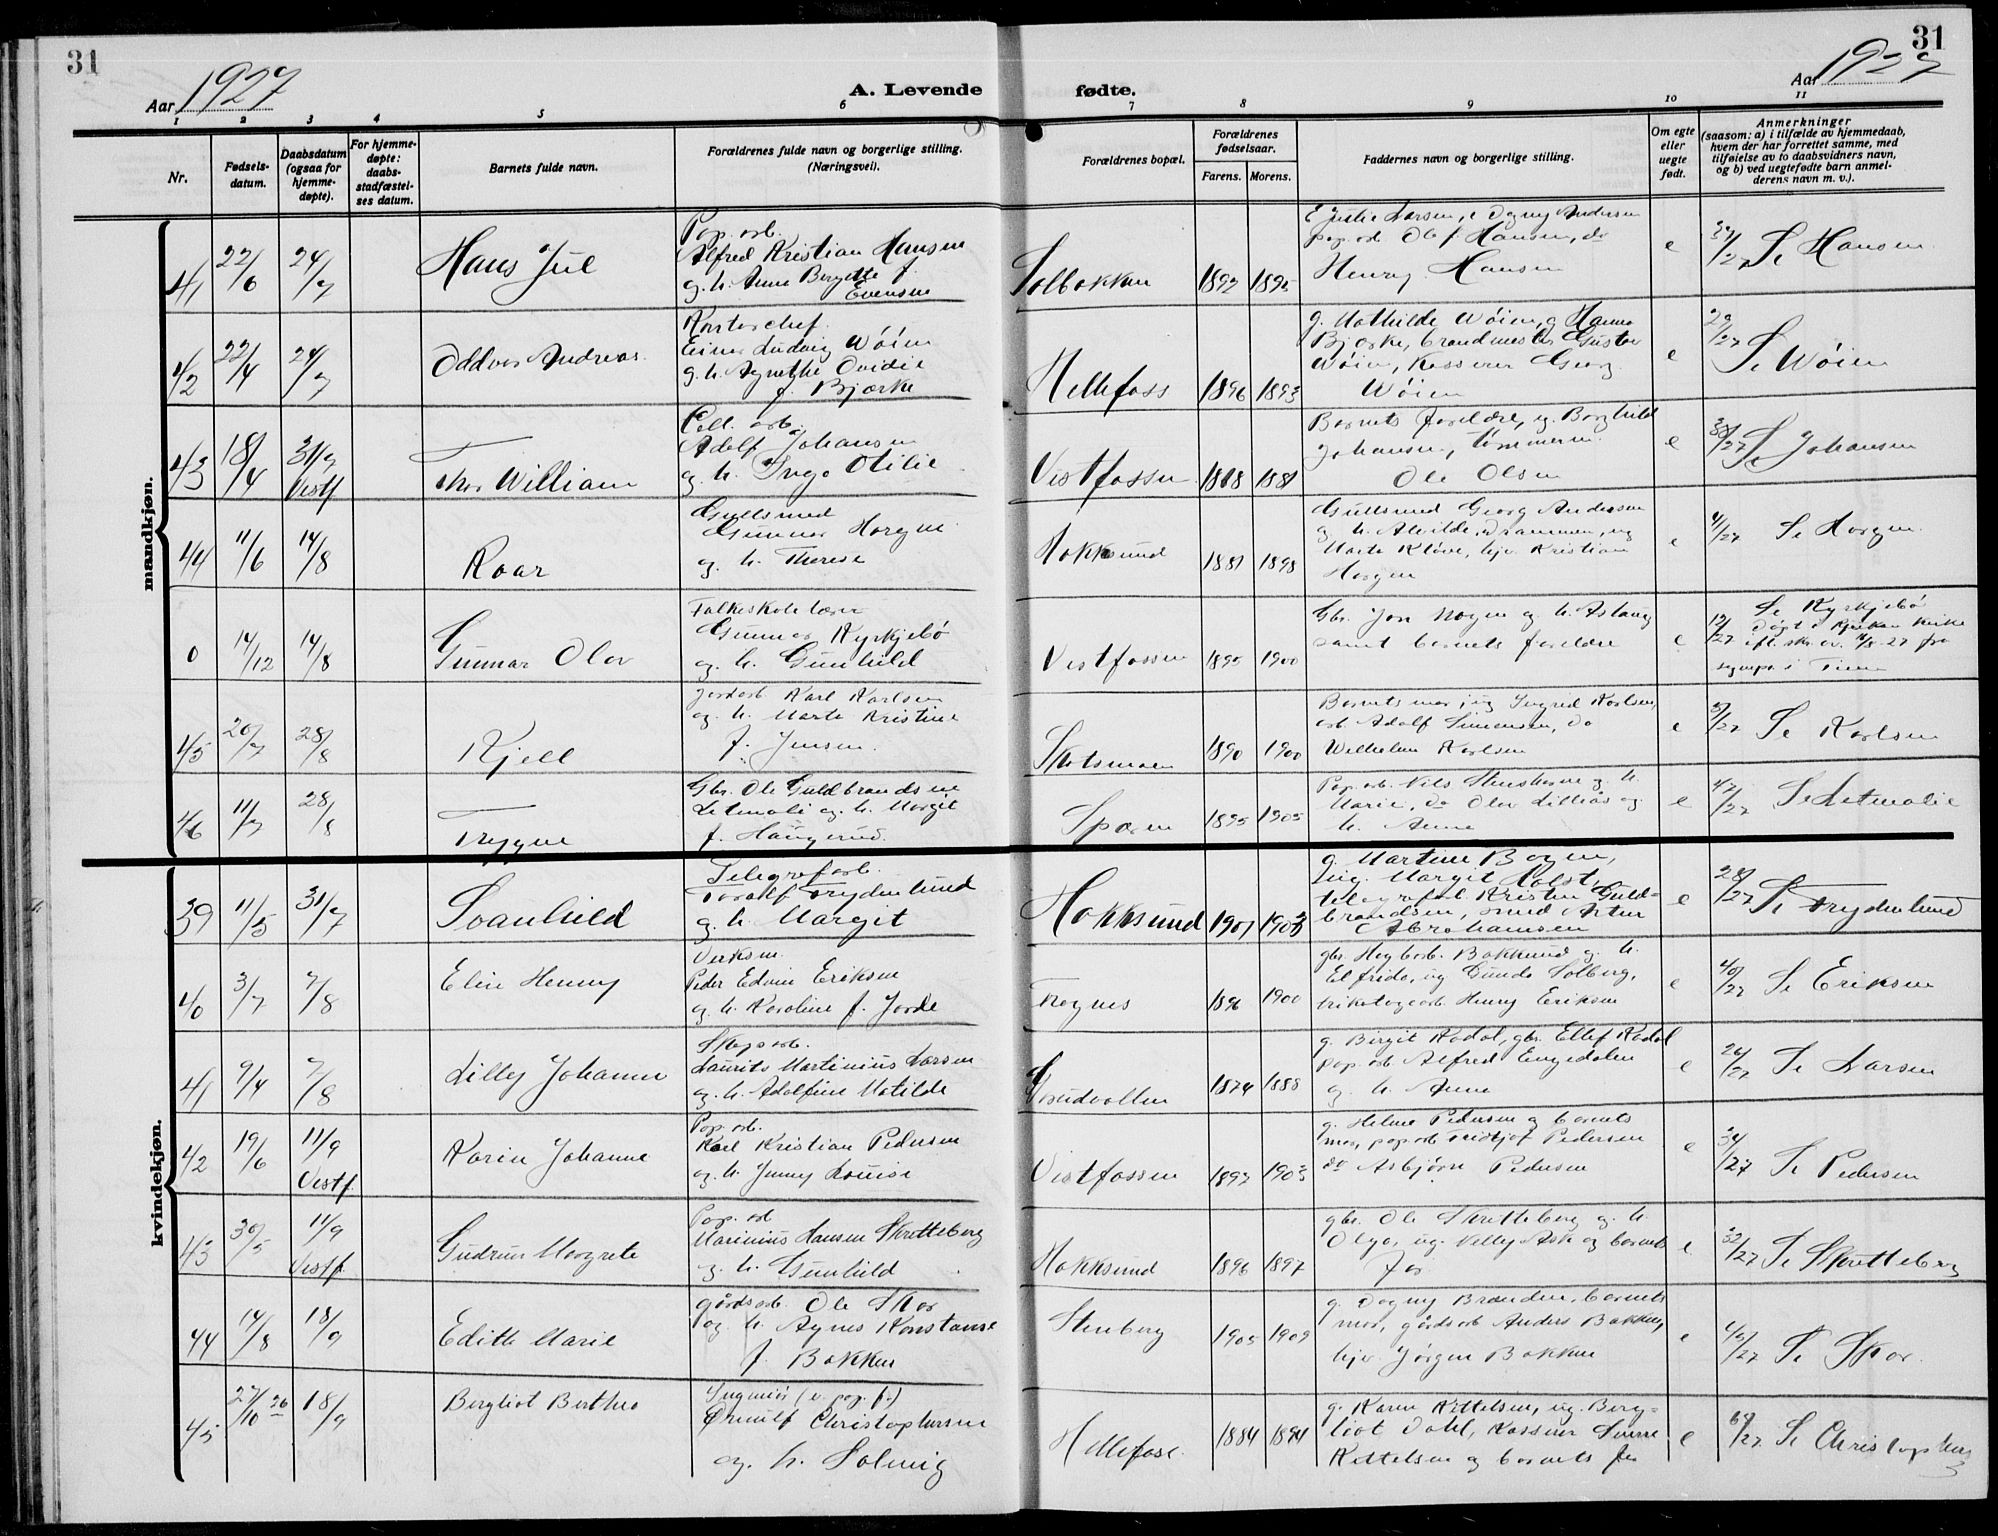 31
31
Aar 1927
A. Levende fødte.
Aar 1927
1 2 3 4 5 6 7 8 9 10 11
Nr.
Fødsels-
datum.
Daabsdatum
(ogsaa for
hjemme-
døpte).
For hjemme-
døpte:
daabs-
stadfæstel-
ses datum.
Barnets fulde navn.
Forældrenes fulde navn og borgerlige stilling.
(Næringsvei).
Forældrenes bopæl.
Forældrenes
fødselsaar.
Farens. Morens.
Faddernes navn og borgerlige stilling.
Om egte
eller
uegte
født.
Anmerkninger
(saasom: a) i tilfælde av hjemmedaab,
hvem der har forrettet samme, med
tilføielse av to daabsvidners navn,
og b) ved uegtefødte barn anmel-
derens navn m. v.).
mandkjøn.
41 22/6 24/7
Hans Jul
Pap. arb.
Alfred Kristian Hansen
og h. Anne Bergitte f.
Evensen
Solbakken 1892 1895
Julie Larsen, Dagny Andersen
pap. arb. Olaf Hansen, do
Henry Hansen
e Se Hansen
42 22/4 24/7
Oddvar Andreas
Kontorchef
Einar Ludvig Wøien
g. h. Agnethe Ovidie
f. Bjørke
Hellefoss 1896 1893
g. Mathilde Wøien, g. Hanna
Bjørke, brandmester Gustav
Wøien, Kasserer Georg
Wøien
e 29/27 Se Wøien
43 18/4 31/7
Vestf
Thor William
Cell. arb.
Adolf Johansen
og h. Inga Otilie
Vestfossen 1888 1881
Barnets forældre, ug. Borghild
Johansen, tømmerm.
Ole Olsen
e 38/27 Se Johansen
44 11/6 14/8
Roar
Gullsmed
Gunnar Horgen
og h. Therese
Hokksund 1881 1898
Gullsmed Georg Andersen
og h. Alvilde, Drammen, ug
Marte Kløve, hjv. Kristian
Horgen
e Se Horgen
0 14/12 14/8
Gunnar Olav
Folkeskolelærer
Gunnar Kyrkjebø
og h. Gunhild
Vestfossen 1895 1900
Gbr. Jon Hogen og h. Aslaug
samt barnets foreldre
e 12/27 Se Kyrkjebø
Døpt i kirke
ift. skr. av 14/8-27 fra
sognepr. i Tinn
45 20/7 28/8
Kjell
Jordarb Karl Karlsen
og h. Marta Kristine
f. Jensen.
Skotsmoen 1890 1900
Barnets mor, ug Ingrid Karlsen,
arb Adolf Simensen, do
Wilhelm Karlsen
e Se Karlsen
46 11/7 28/8
Trygve
Gbr. Ole Guldbrandsen
Letmoli og h. Margit
f. Haugerud.
Sporen 1895 1905
Pap. arb. Nils Stenshorne og h.
Marie, do Olav Lilliås og
h. Anne
e 47/27 Se Letmolie
kvindekjøn.
39 11/5 31/7
Svanhild
Telegrafarb.
Toralf Frydenlund
og h. Margit
Hokksund 1901 1903
g. Martine Bogen,
ug. Margit Holst,
telegrafarb. Kristen Guld-
brandsen, smed Artur
Abrahamsen
e 28/27 Se Frydenlund
40 3/7 7/8
Elin Henny
Verksm.
Peder Edvin Eriksen
og h. Karoline f. Jorde
Frognes 1896 1900
gbr. Bakkerud og h.
Elfrida, ug Gunda Solberg,
trikotagearb. Henry Eriksen
e 40/27 Se Eriksen
41 9/4 7/8
Lilly Johanne
Skogsarb.
Laurits Martinius Larsen
og h. Adolfine Matilde
Grundvollen 1874 1888
g. Birgit Rødal, gbr. Ellef Rødal
pap. arb Alfred Engedalen
og h. Anne
e 26/27 Se Larsen
42 19/6 11/9
Vestf.
Karin Johanne
Pap. arb.
Karl Kristian Pedersen
og h. Jenny Louise
Vestfossen 1893 1903
g. Helene Pedersen og barnets
mor, pap. arb Fridtjof Pedersen
do Asbjørn Pedersen
e 34/27 Se Pedersen
43 30/5 11/9
Vestf.
Gudrun Margrete
Pap. arb
Marinius Hansen Skretteberg
og h. Gunhild
Hokksund 1896 1897
gbr. Ole Skretteberg og h.
Olga, ug. Nelly Ask og barnets
far
e 32/27 Se Skretteberg
44 14/8 18/9
Edith Marie
gårdsarb. Ole Skar
og h. Agnes Konstanse
f. Bakken
Stenberg 1905 1909
g. Dagny Branden, barnets
mor, gårdsarb Anders Bakken,
hjv. Jørgen Bakken
e Se Skar.
45 27/10 26 18/9
Bergliot Berthea
Ingeniør (v. pap. f.)
Ørnulf Christophersen
og h. Solveig
Hellefoss. 1884 1894
g. Karen Kittelsen, ug. Berg-
liot Dahl, Kasserer Sverre
Kittelsen og barnets far
e Se Christophers